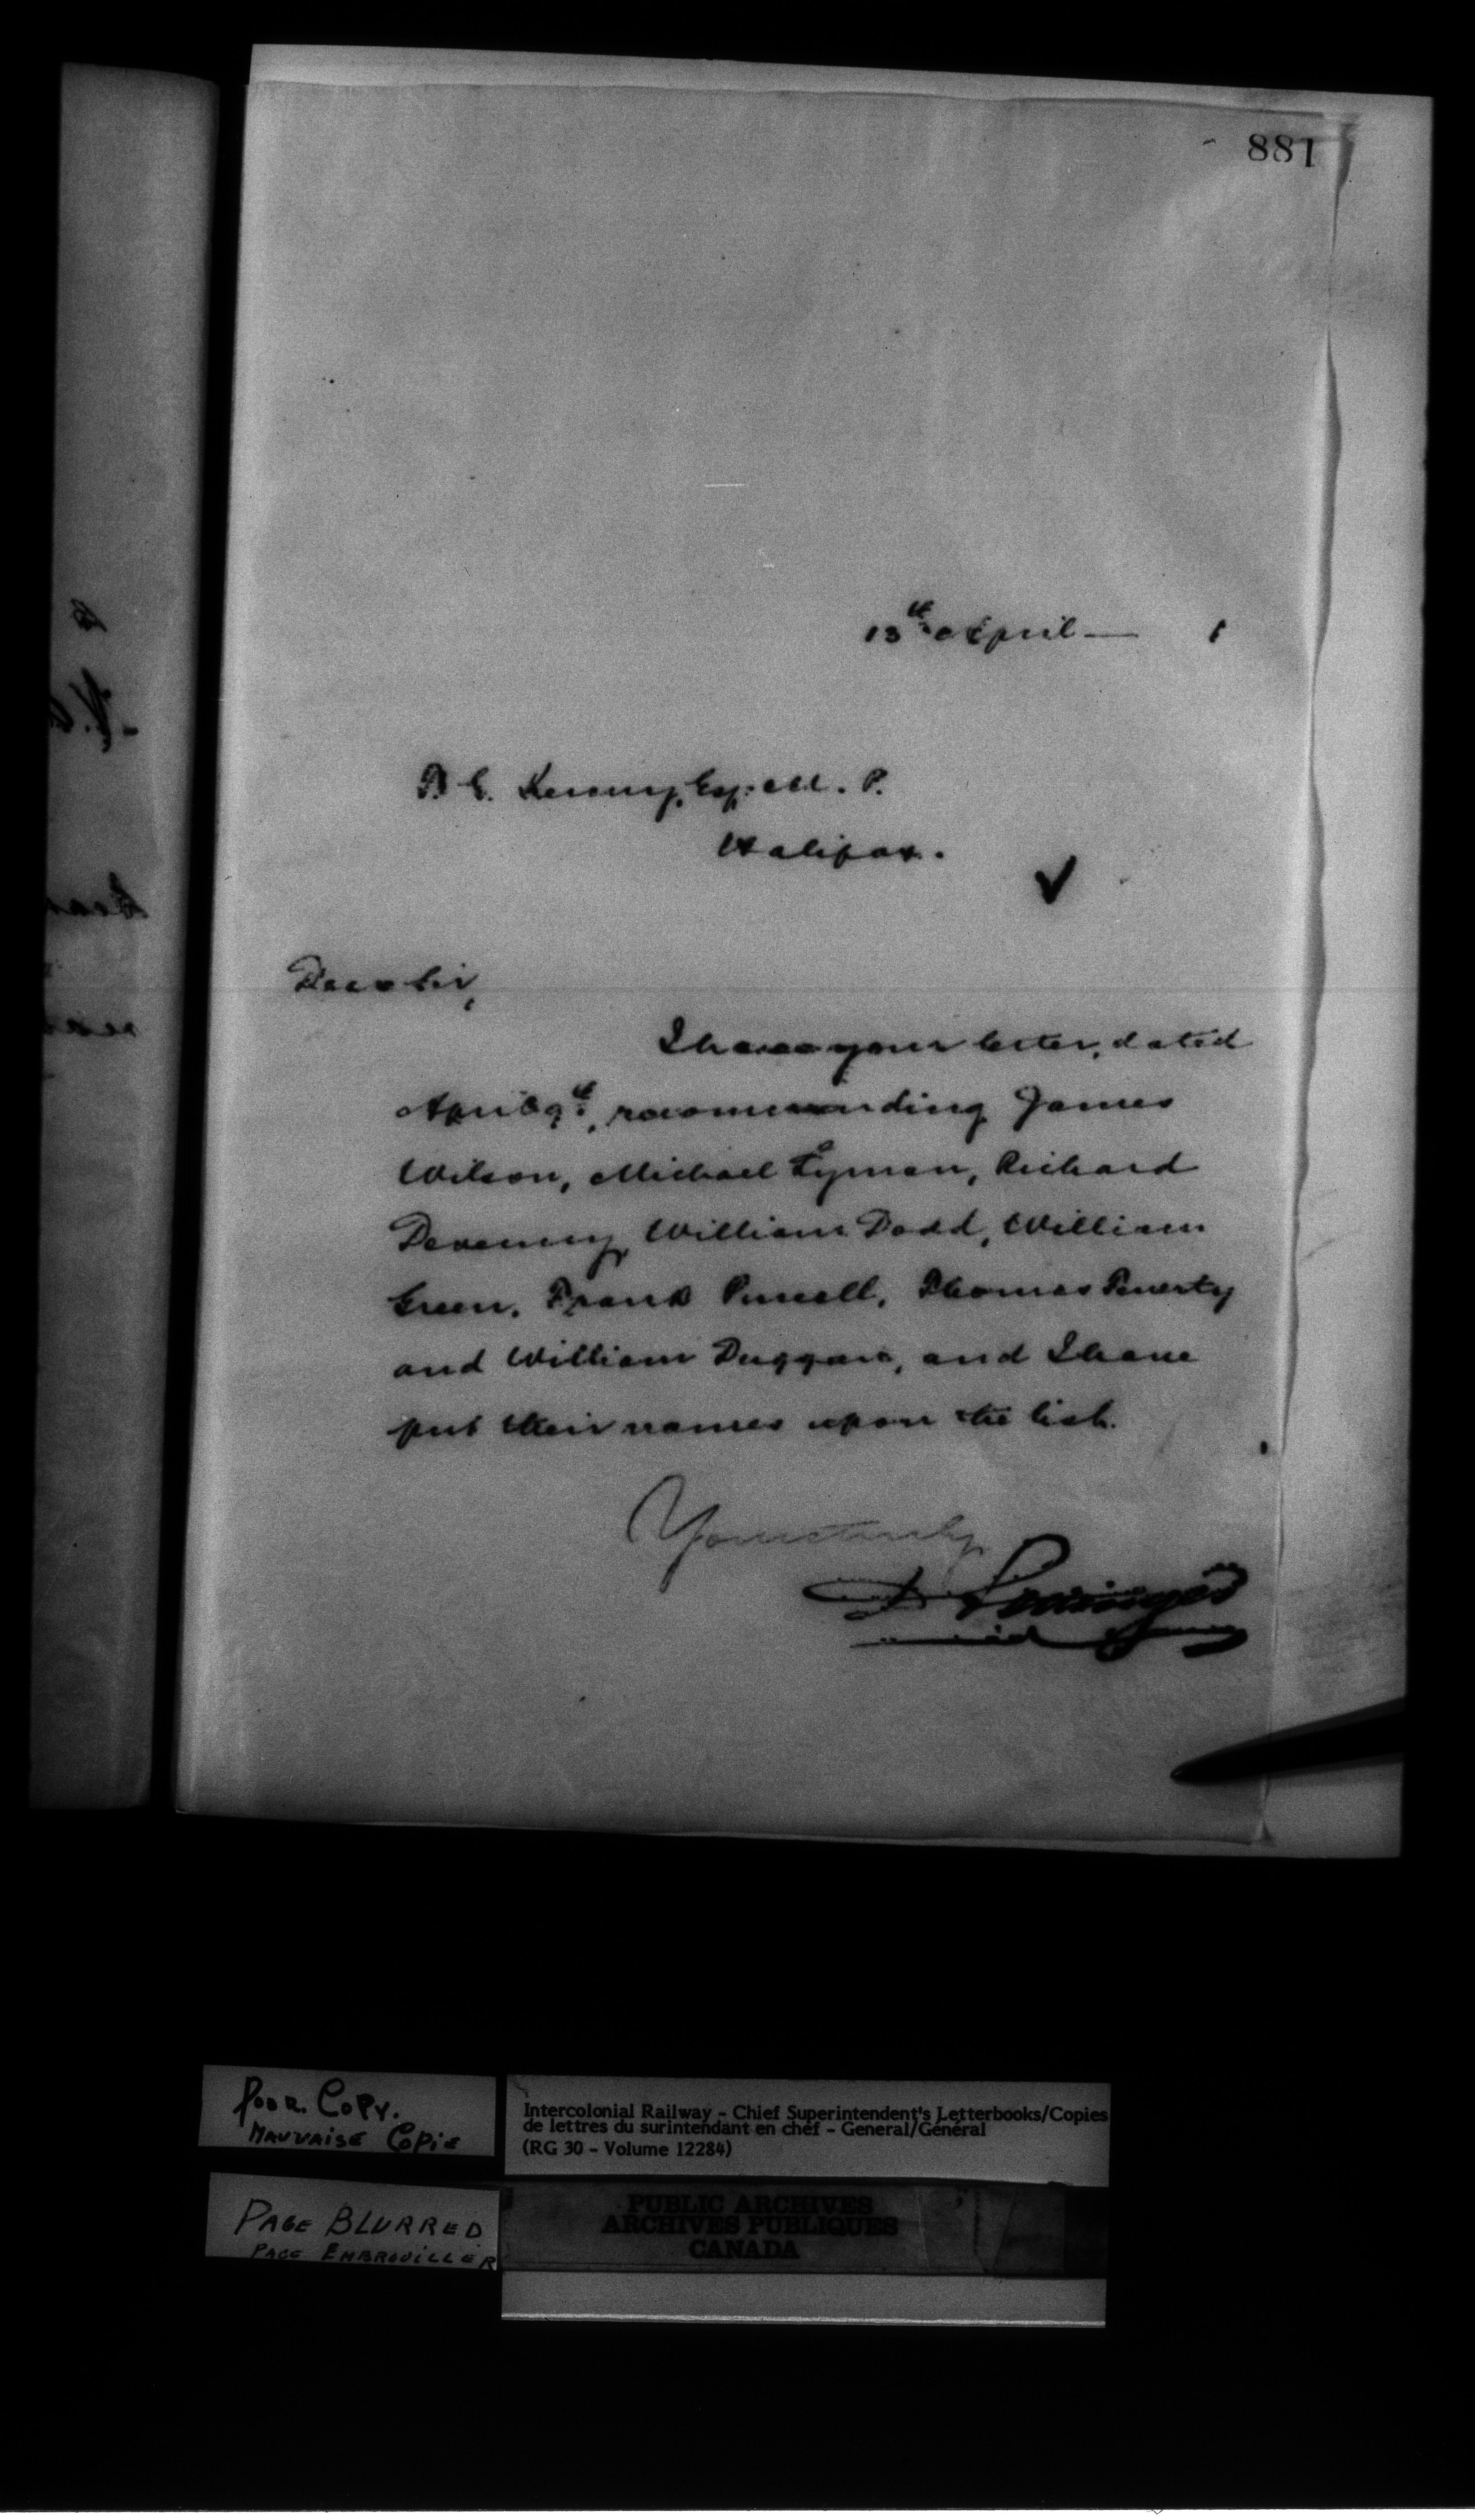 881
13th April — 1
T. E. Kenny, Esq. M. P.
Halifax.
Dear Sir,
I have your letter, dated
April 9th, recommending James
Wilson, Michael Lyman, Richard
Devenny, William Dodd, William
Green, Frank Purcell, Thomas Fenerty
and William Duggan, and I have
put their names upon the list.
Yours truly
D Pottinger
Poor Copy.
Mauvaise Copie
Intercolonial Railway - Chief Superintendent's Letterbooks/Copies
de lettres du surintendant en chef - General/Général
(RG 30 - Volume 12284)
Page Blurred
Page Embrouiller
PUBLIC ARCHIVES
ARCHIVES PUBLIQUES
CANADA